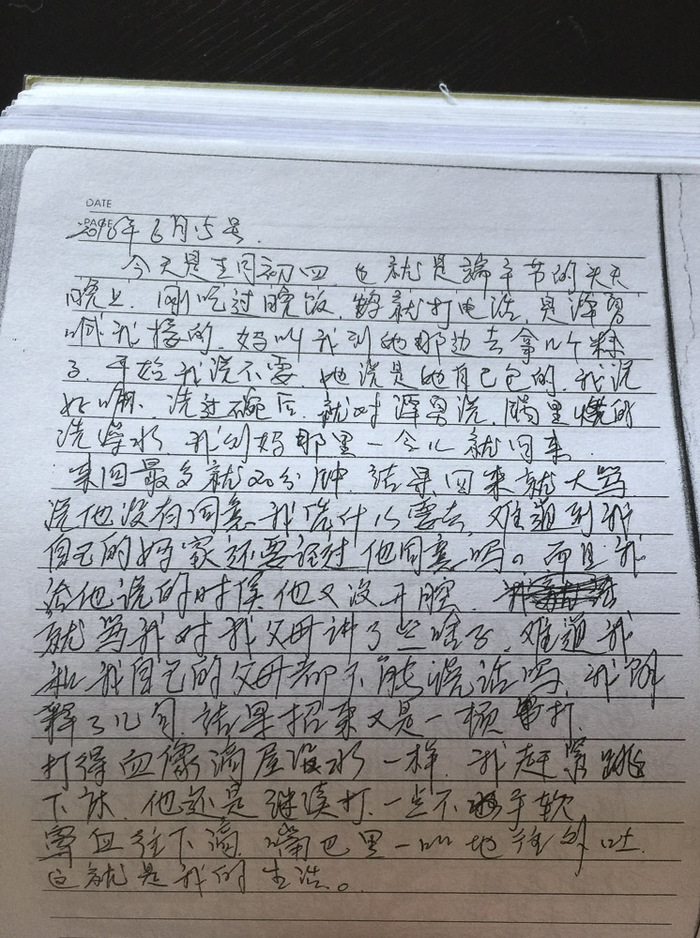 DATE
PAGE
2016年6月15号.
今天是五月初四,也就是端午节的头天
晚上.刚吃过晚饭,妈就打电话,是泽勇
喊我接的.妈叫我到她那边去拿几个粽
子.开始我说不要,她说是她自己包的,我说
好嘛.洗过碗后,就对泽勇说,锅里烧的
洗澡水,我到妈那里一会儿就回来.
来回最多就20分钟,结果,回来就大骂
说他没有同意我凭什么要去,难道到我
自己的妈家还要经过他同意吗。而且我
给他说的时候他又没开腔.
就骂我对我父母讲了些啥子,难道我
和我自己的父母都不能说话吗,我解
释了几句,结果招来又是一顿打.
打得血像滴屋没水一样,我赶紧跳
下床,他还是继续打,一点不手软
鼻血往下滴,嘴巴里一口地往外吐.
这就是我的生活。